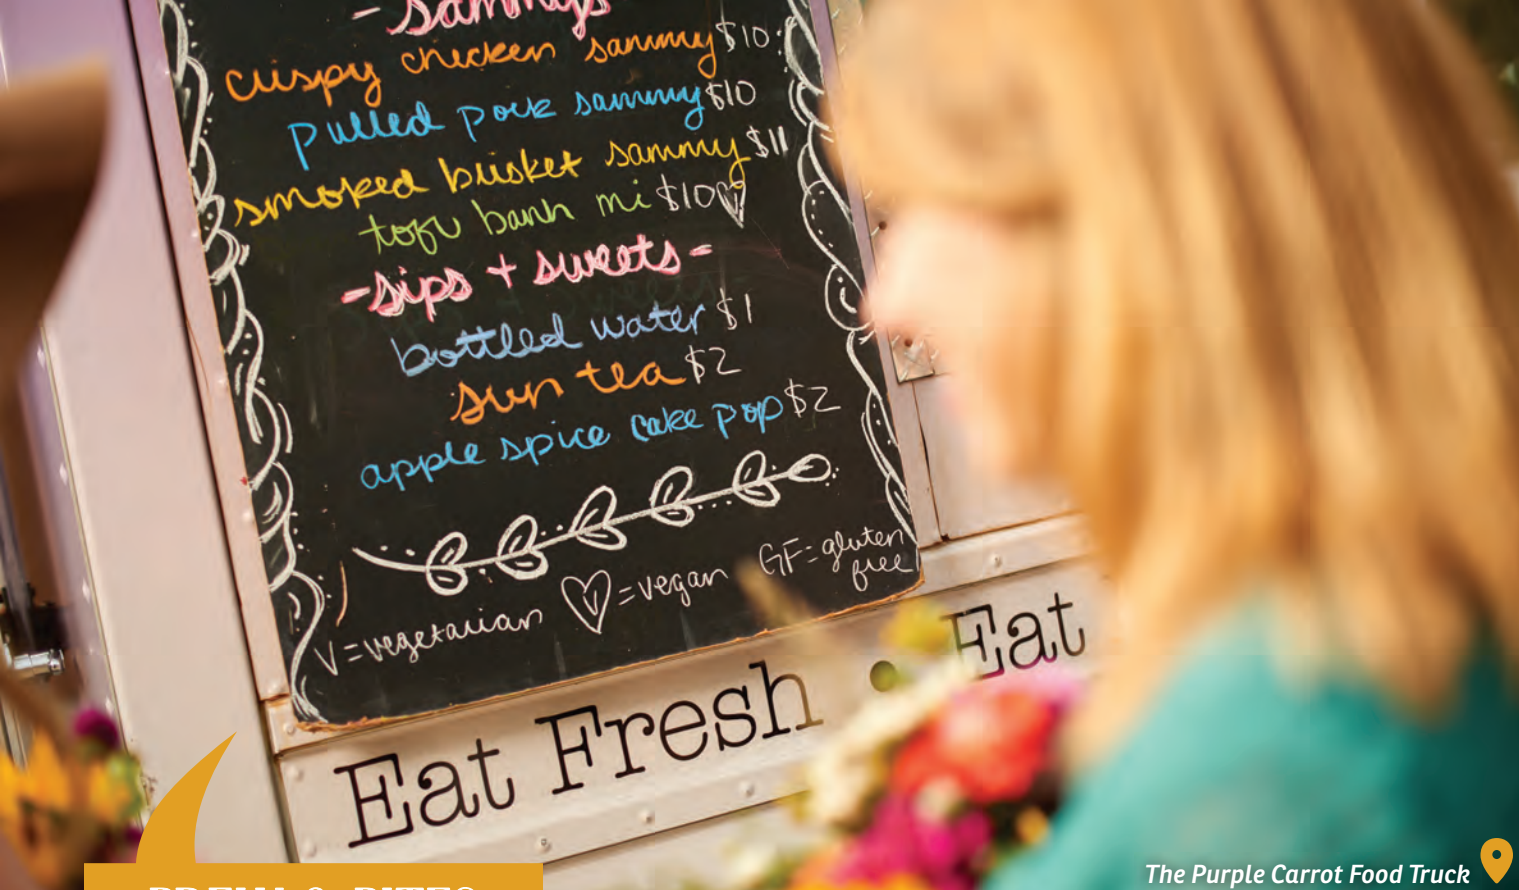 - sammys
crispy chicken sammy $10
pulled pork sammy $10
smoked brisket sammy $11
tofu banh mi $10 V
- sips + sweets -
bottled water $1
sun tea $2
apple spice cake pop $2
V = vegetarian V = vegan GF = gluten free
Eat Fresh • Eat
The Purple Carrot Food Truck